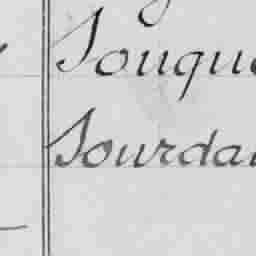 Souqu
Sourda